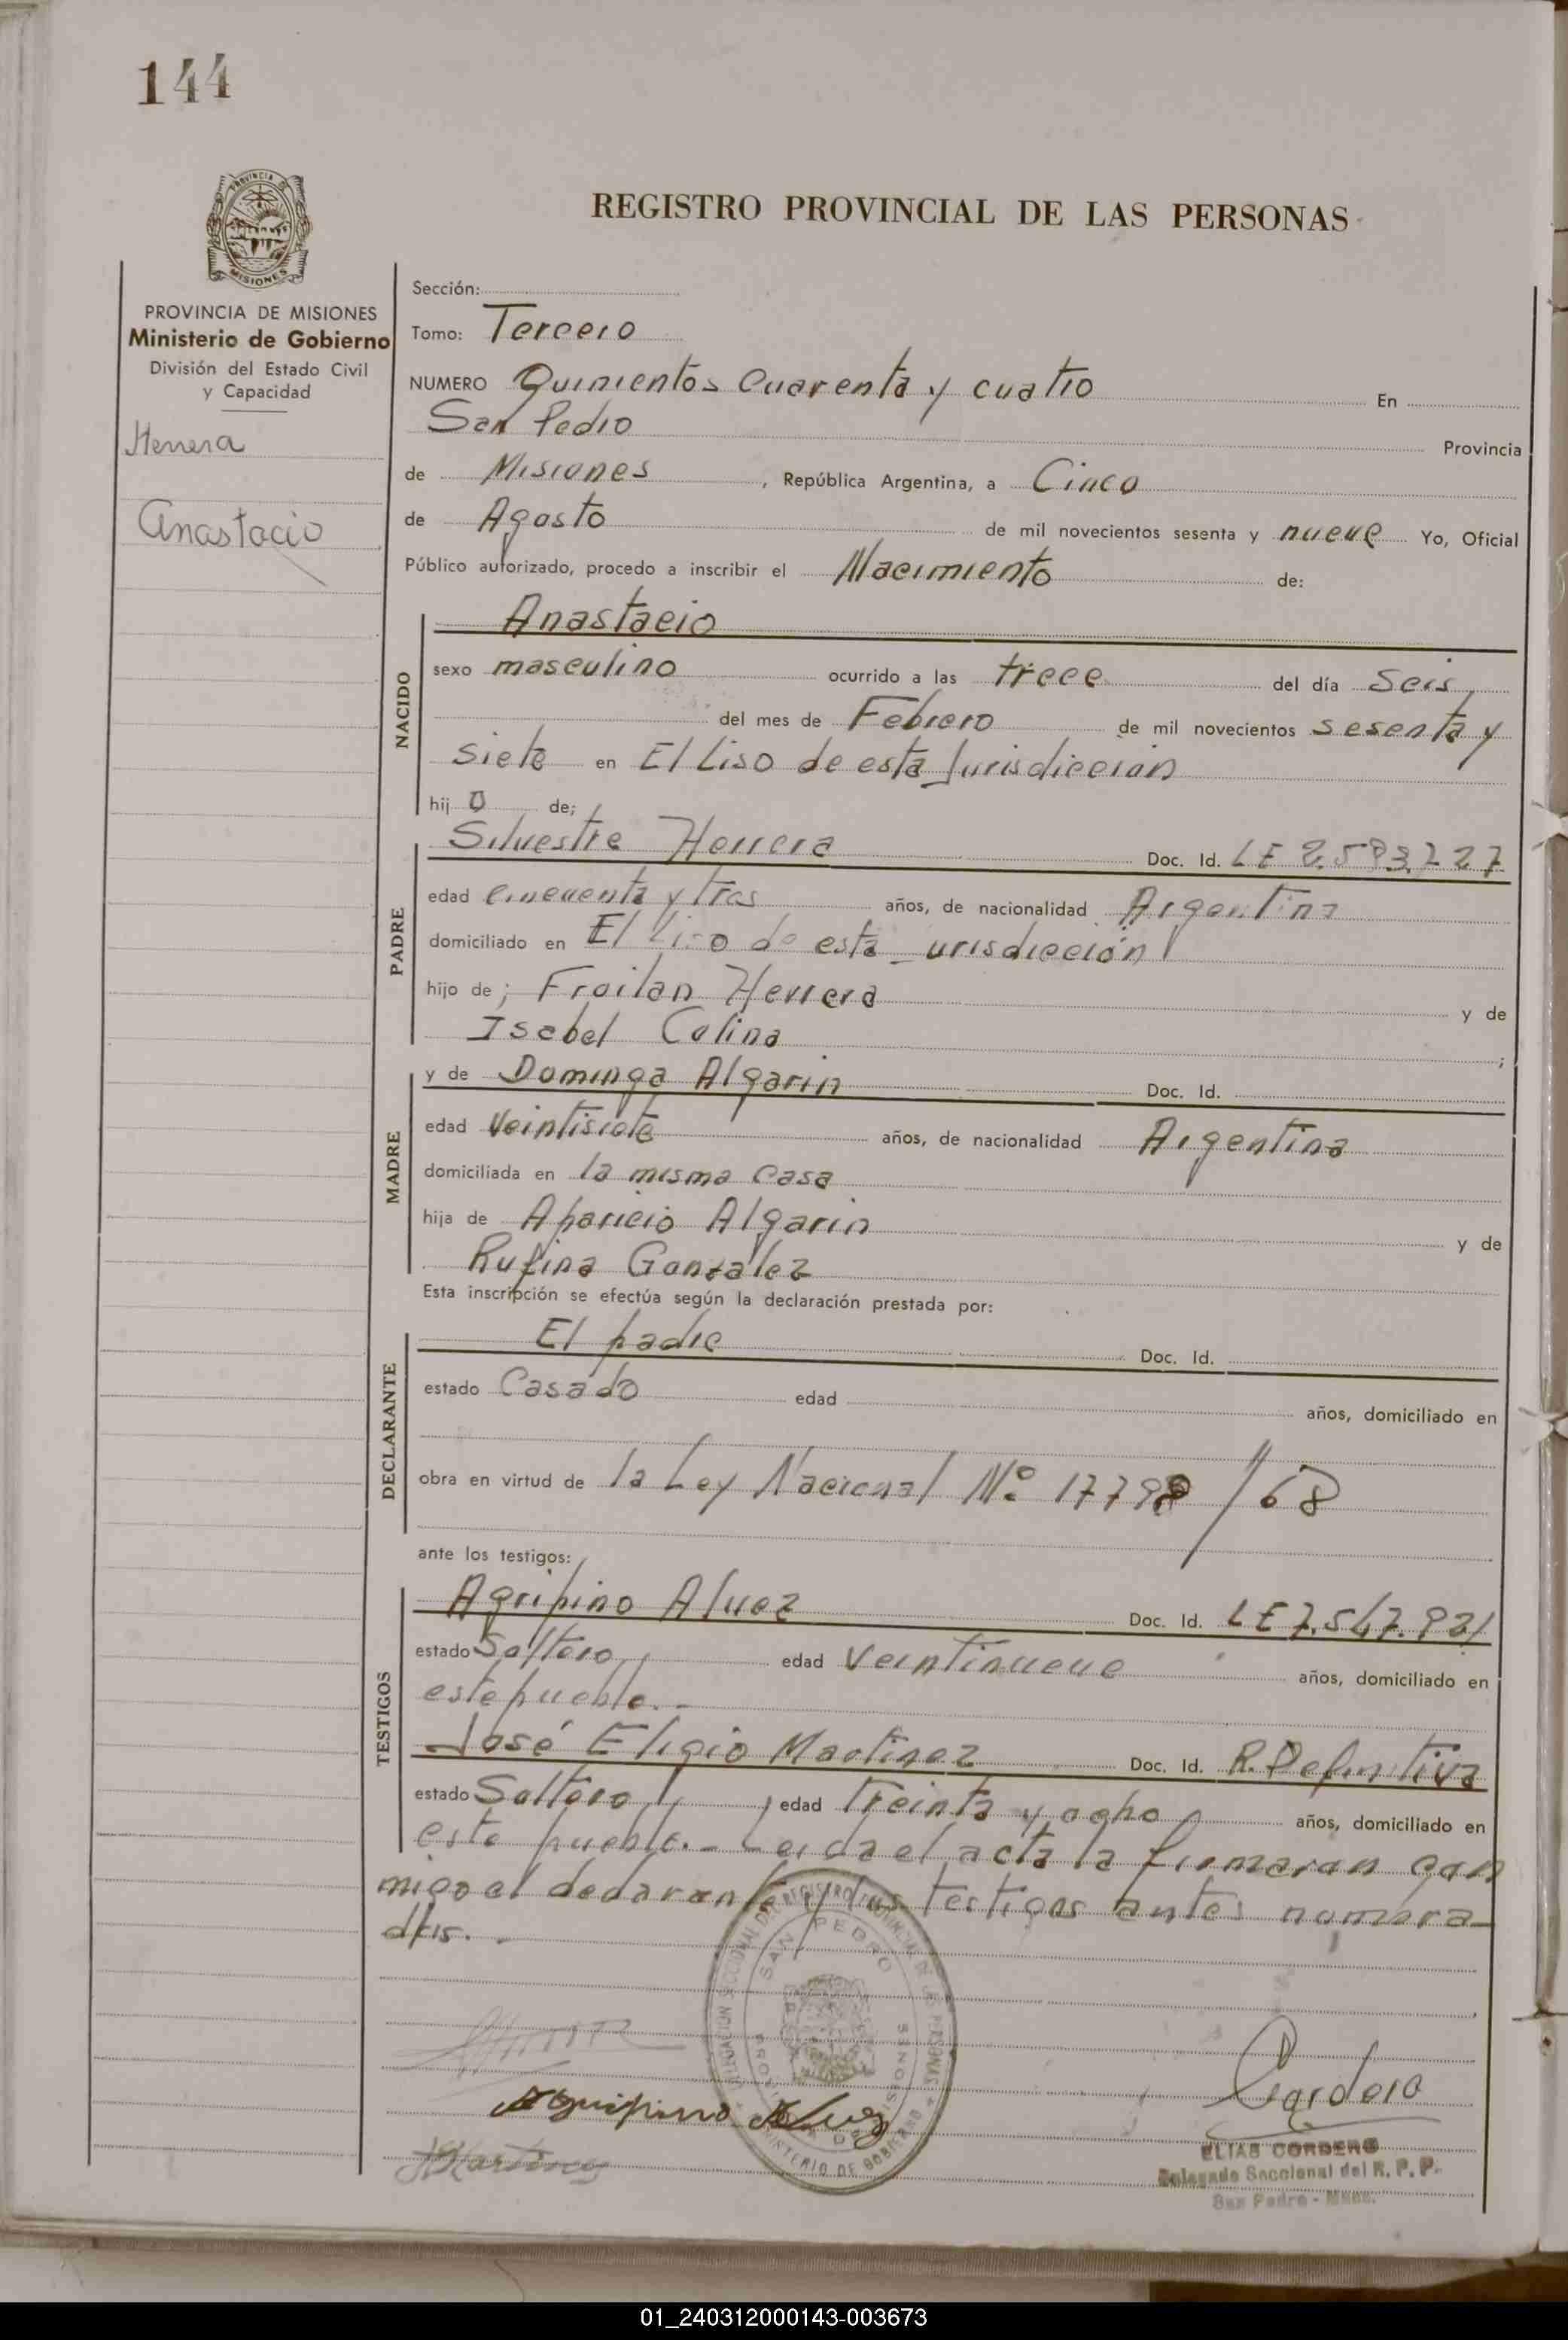 144
PROVINCIA DE MISIONES
REGISTRO PROVINCIAL DE LAS PERSONAS
PROVINCIA DE MISIONES
Ministerio de Gobierno
División del Estado Civil
y Capacidad
Herrera
Anastacio
Sección:
Tomo: Tercero
NUMERO Quinientos Cuarenta y cuatro En
San Pedro Provincia
de Misiones, República Argentina, a Cinco
de Agosto de mil novecientos sesenta y nueve Yo, Oficial
Público autorizado, procedo a inscribir el Nacimiento de:
NACIDO
Anastacio
sexo masculino ocurrido a las trece del día Seis
del mes de Febrero de mil novecientos sesenta y
siete en El Liso de esta Jurisdiccion
hijo de;
PADRE
Silvestre Herrera Doc. Id. LE 2.583.727
edad cincuenta y tres años, de nacionalidad Argentina
domiciliado en El Liso de esta jurisdicción
hijo de; Froilan Herrera y de
Isabel Colina ;
MADRE
y de Dominga Algarin Doc. Id.
edad Veintisiete años, de nacionalidad Argentina
domiciliada en la misma Casa
hija de Aparicio Algarin y de
Rufina Gonzalez
Esta inscripción se efectúa según la declaración prestada por:
DECLARANTE
El padre Doc. Id.
estado Casado edad años, domiciliado en
obra en virtud de la Ley Nacional Nº 17798/68
ante los testigos:
TESTIGOS
Agripino Alvez Doc. Id. LE 7.547.921
estado Soltero edad Veintinueve años, domiciliado en
este pueblo.-
José Eligio Martinez Doc. Id. R. Definitiva
estado Soltero, edad treinta y ocho años, domiciliado en
este pueblo.- Leida el acta la firmaran con
migo el declarante y los testigos antes nombra-
dos.-
DELEGACION SECCIONAL DEL REGISTRO PROVINCIAL DE LAS PERSONAS
SAN PEDRO
PROVINCIA DE MISIONES
MINISTERIO DE GOBIERNO
Agripino Alvez
JMartinez
Cordero
ELIAS CORDERO
Delegado Seccional del R. P. P.
San Pedro - Mnes.
01_240312000143-003673